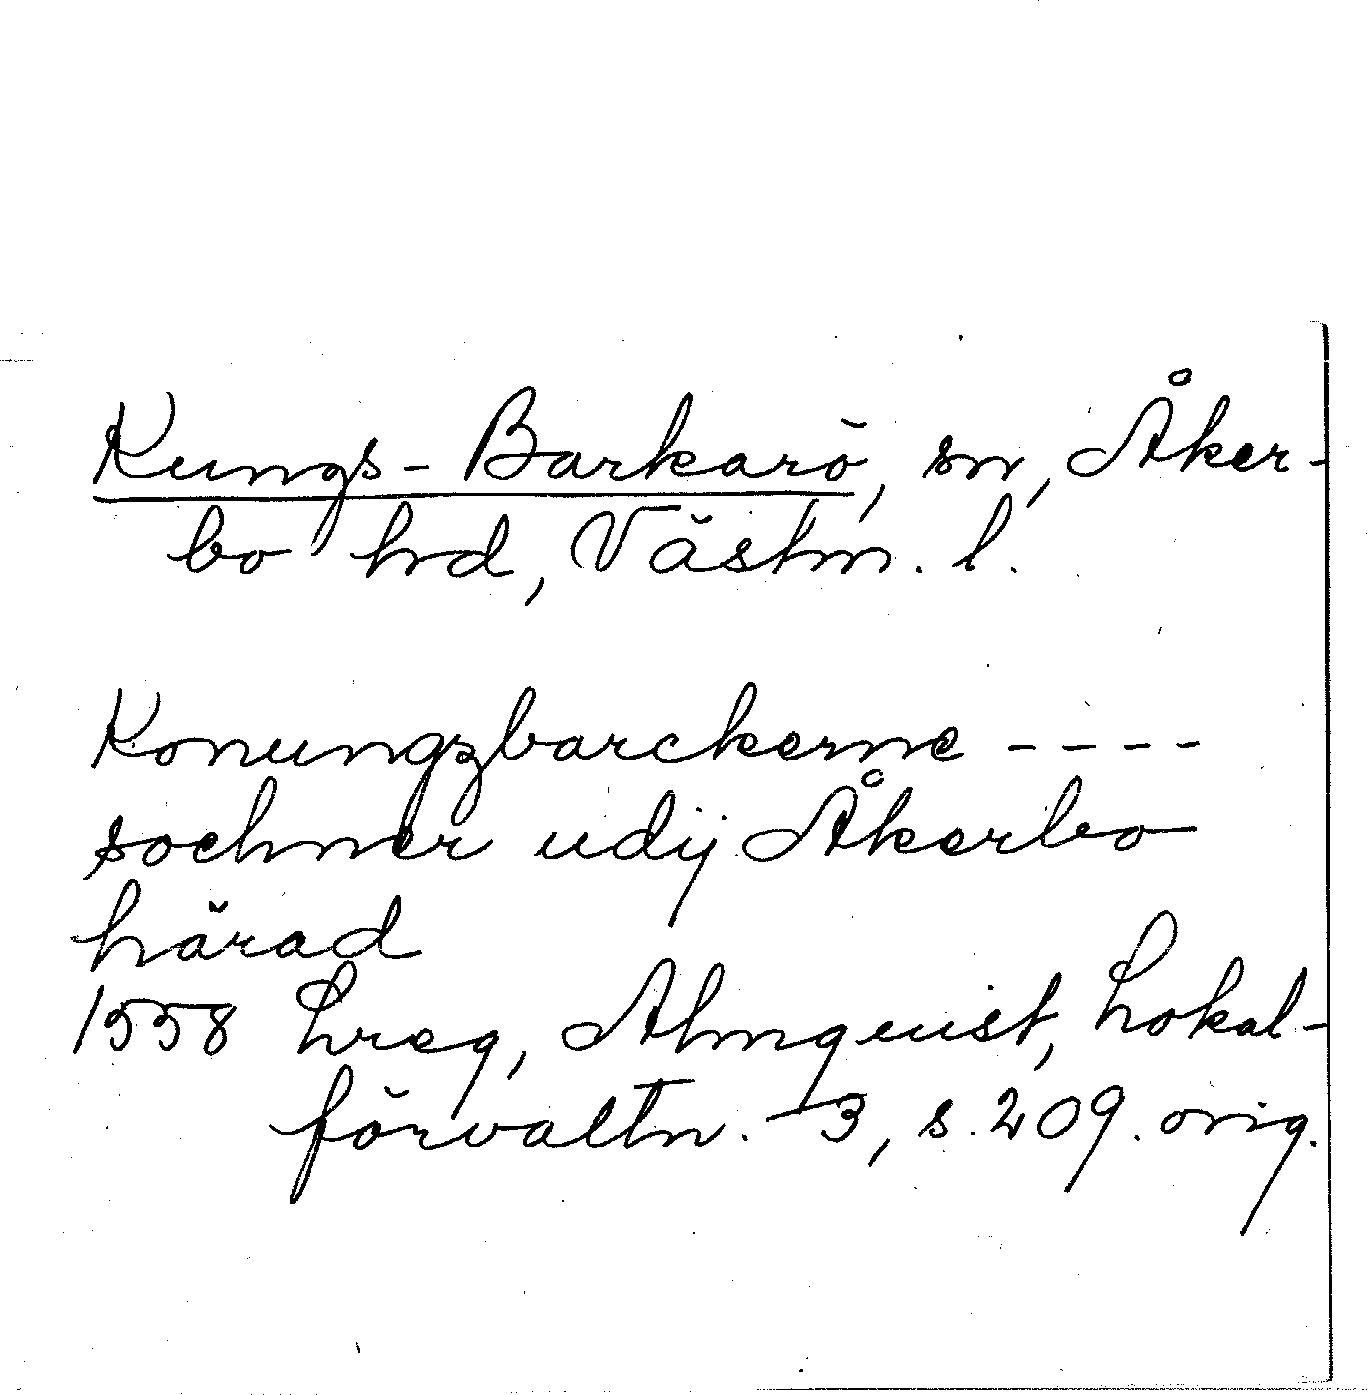 Kungs-Barkarö, sn, Åker-
bo hd, Västm. l.
Konungzbarckerne ----
sochner udij Åkerbo
härad
1558 Lreg, Almquist, Lokal-
förvaltn. 3, s. 209. orig.